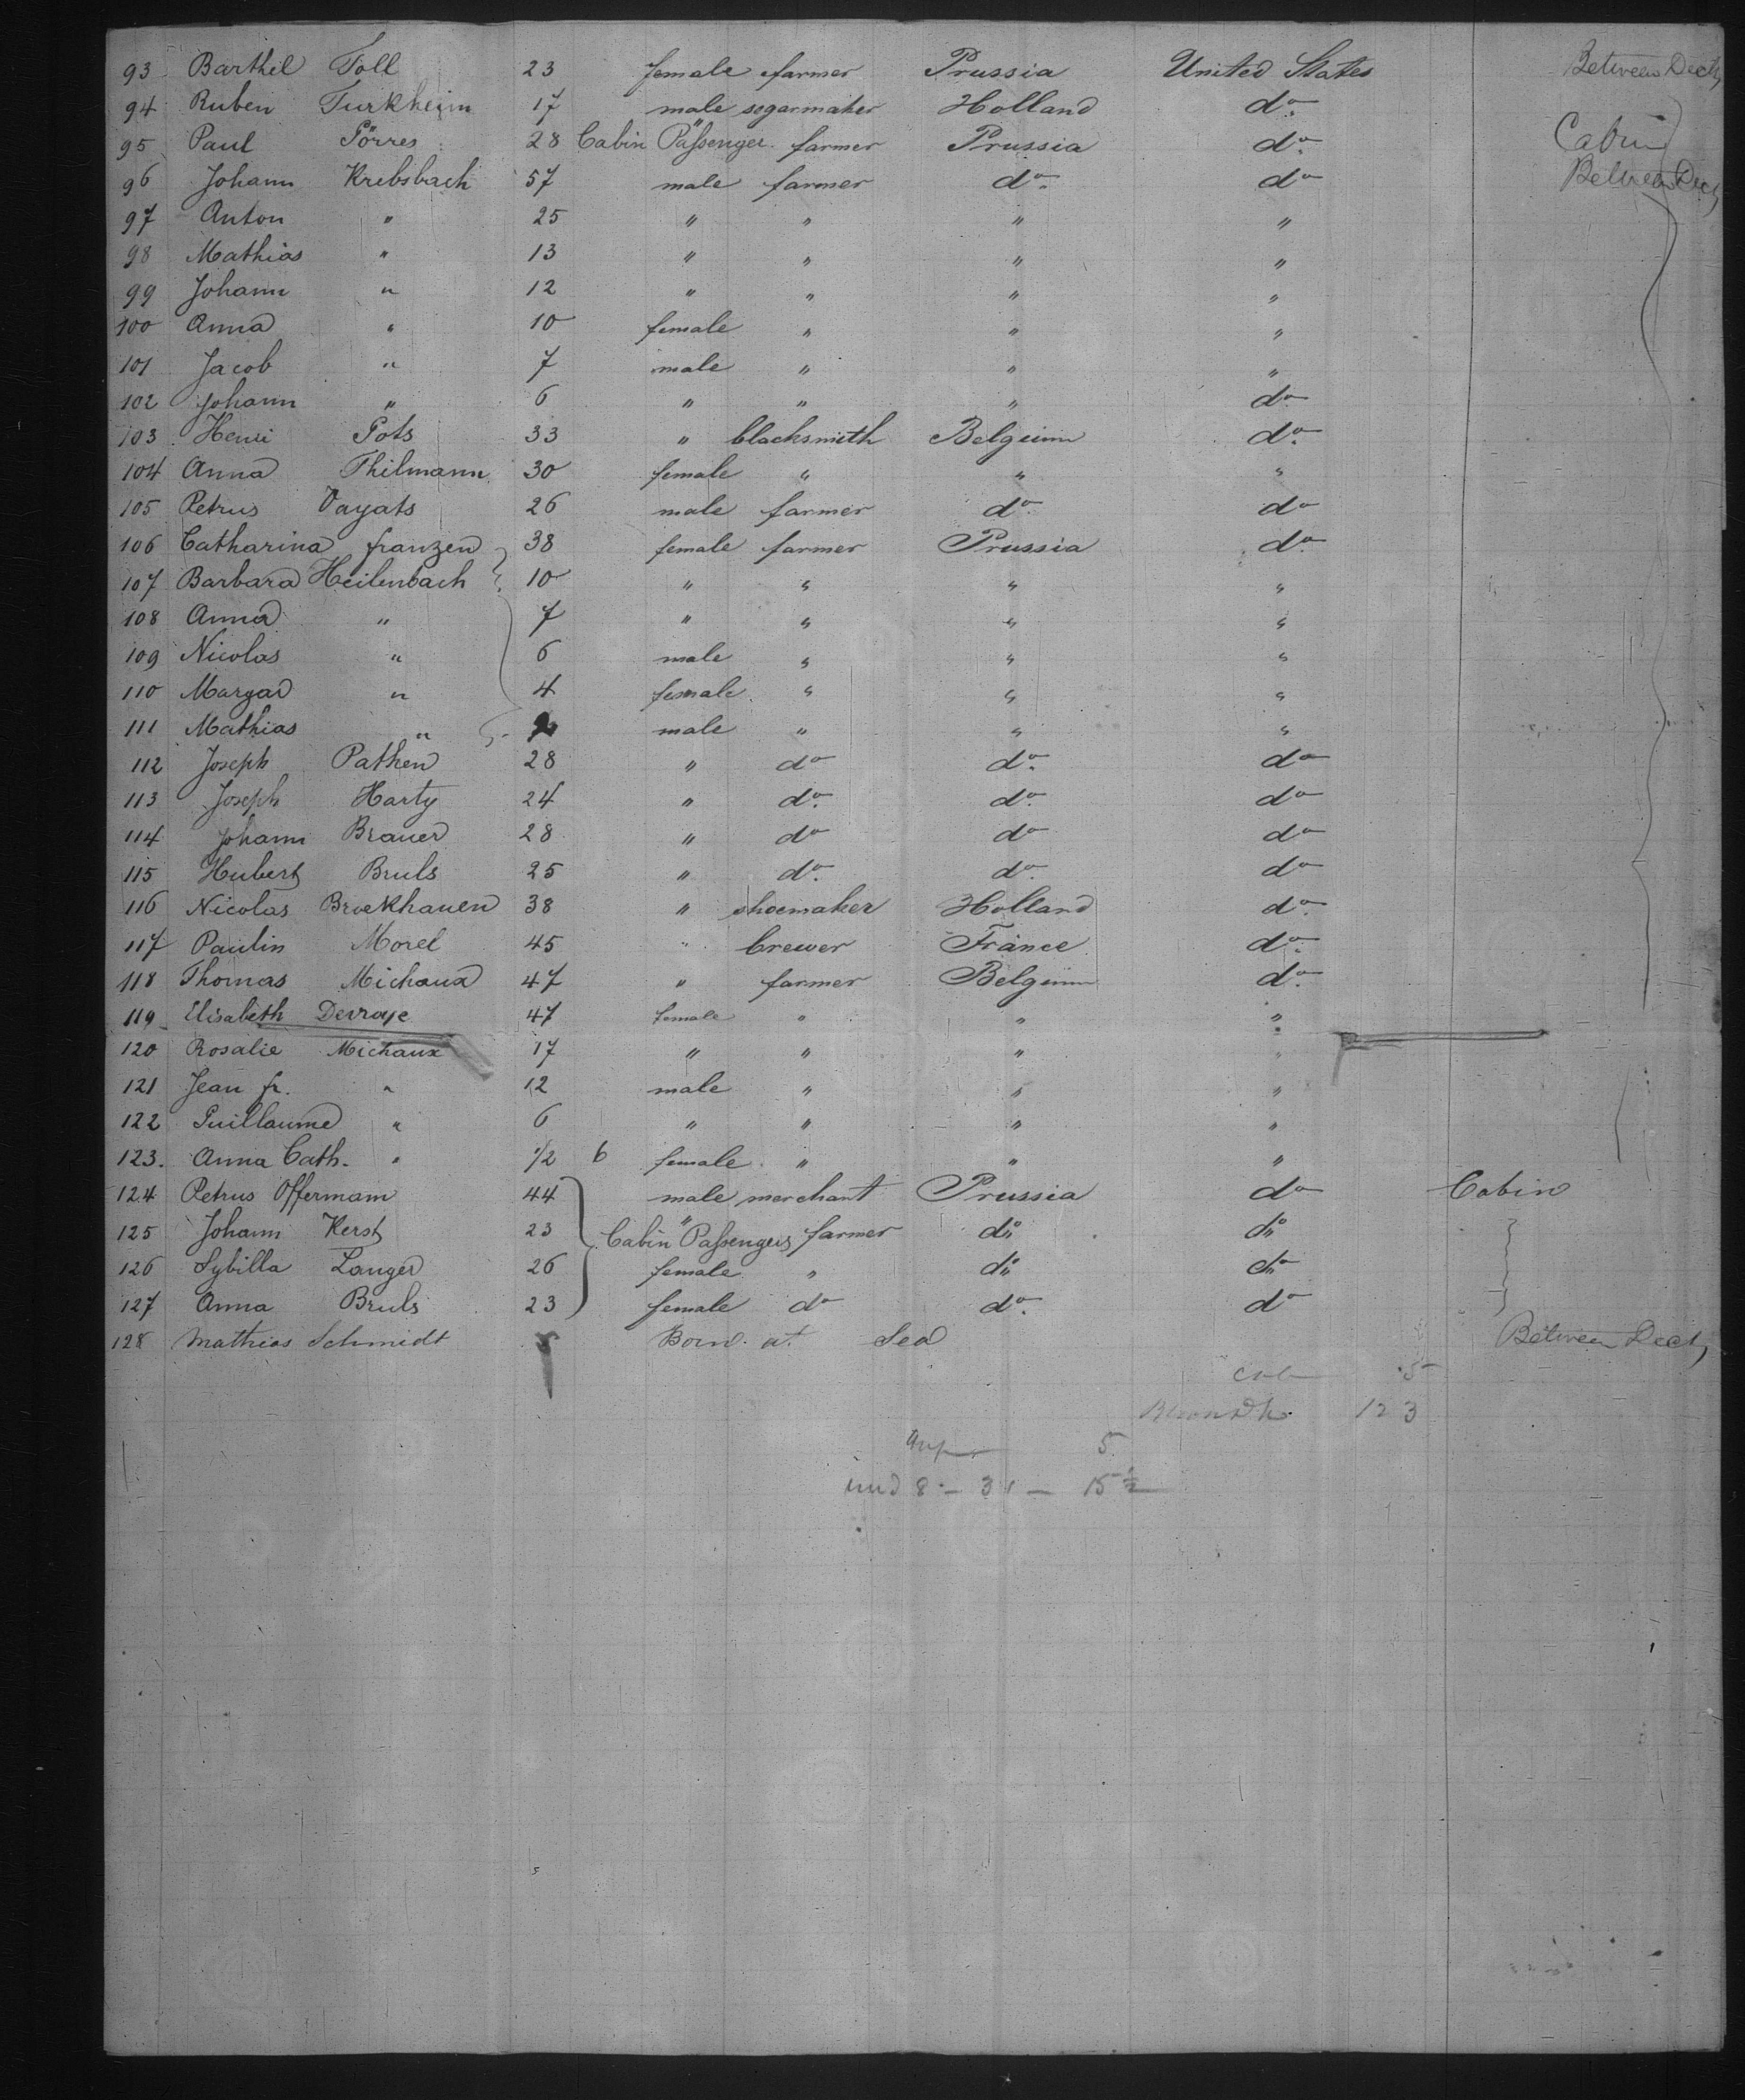 93 Barthel Toll 23 female farmer Prussia United States Between Decks
94 Ruben Turkheim 17 male segarmaker Holland do
95 Paul Pörres 28 Cabin Passenger " farmer Prussia do Cabin
96 Johann Krebsbach 57 male farmer do do Between Decks
97 Anton " 25 " " " "
98 Mathias " 13 " " " "
99 Johann " 12 " " " "
100 Anna " 10 female " " "
101 Jacob " 7 male " " "
102 Johann " 6 " " " do
103 Henri Pots 33 " blacksmith Belgium do
104 Anna Thilmann 30 female " " "
105 Petrus Vayats 26 male farmer do do
106 Catharina franzen 38 female farmer Prussia do
107 Barbara Heilenbach 10 " " " "
108 Anna " 7 " " " "
109 Nicolas " 6 male " " "
110 Margar " 4 female " " "
111 Mathias " male " " "
112 Joseph Pathen 28 " do do do
113 Joseph Harty 24 " do do do
114 Johann Brauer 28 " do do do
115 Hubert Bruls 25 " do do do
116 Nicolas Broekhauen 38 " shoemaker Holland do
117 Paulin Morel 45 " brewer France do
118 Thomas Michaux 47 " farmer Belgium do
119 Elisabeth Derroye 47 female " " "
120 Rosalie Michaux 17 " " " "
121 Jean fr. " 12 male " " "
122 Guillaume " 6 " " " "
123. Anna Cath. " 1/2 6 female " " "
124 Petrus Offermann 44 male merchant Prussia do Cabin
125 Johann Kerst 23 " Cabin Passengers farmer do do
126 Sybilla Langer 26 female " do do
127 Anna Bruls 23 female do do do
128 Mathias Schmidt Born at Sea Between Decks
cab 5
123
5
und 8 - 31 - 15 1/2